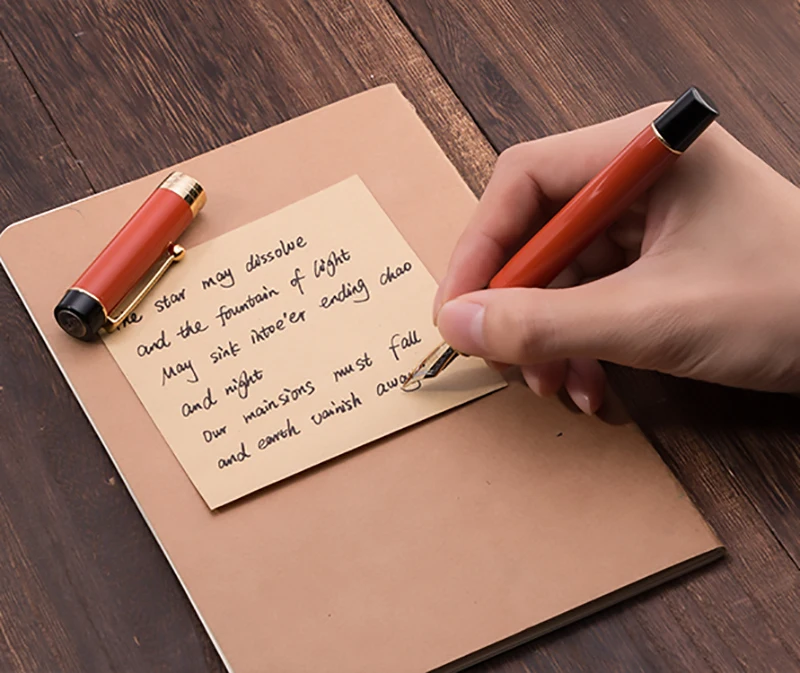 The star may dissolve
and the fountain of light
May sink intoe'er ending chao
and night
Our mainsions must fall
and earth vainish away